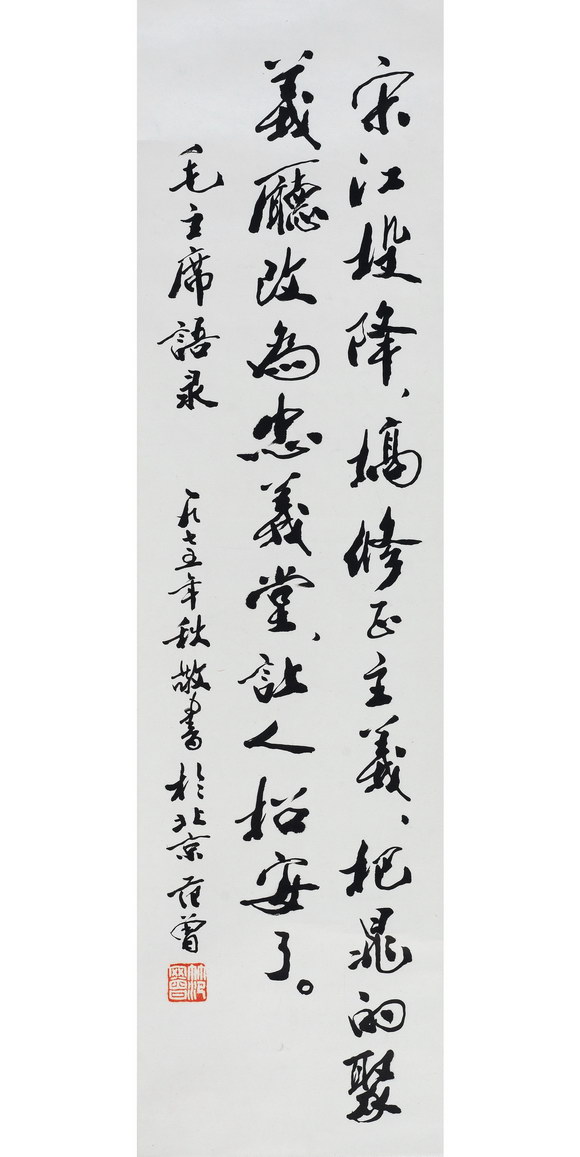 宋江投降、搞修正主義、把晁的聚
義廳改為忠義堂、让人招安了。
毛主席語录
一九七五年秋敬書於北京范曾
范曾